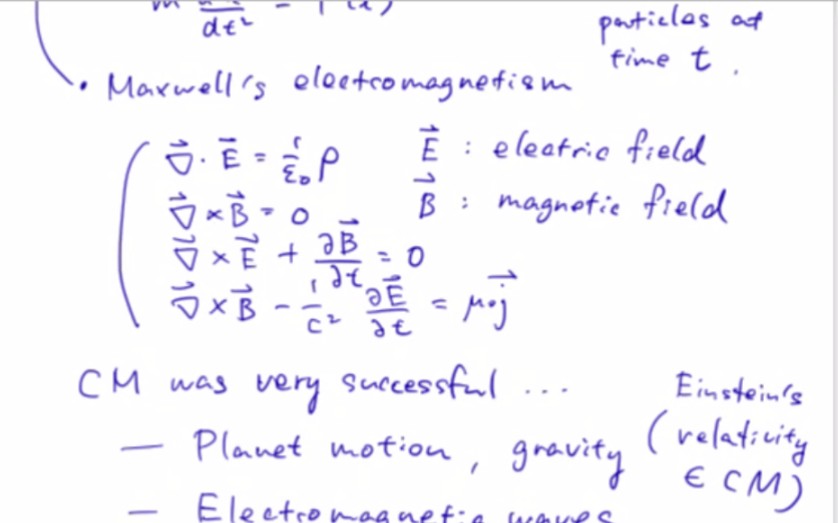 dt²
particles at
time t.
• Maxwell's electromagnetism
∇⃗ · E⃗ = 1/ε₀ ρ
E⃗ : electric field
∇⃗ × B⃗ = 0
B⃗ : magnetic field
∇⃗ × E⃗ + ∂B⃗/∂t = 0
∇⃗ × B⃗ - 1/c² ∂E⃗/∂t = μ₀j⃗
CM was very successful ...
Einstein's
— Planet motion, gravity
(relativity
∈ CM)
— Electromagnetic waves